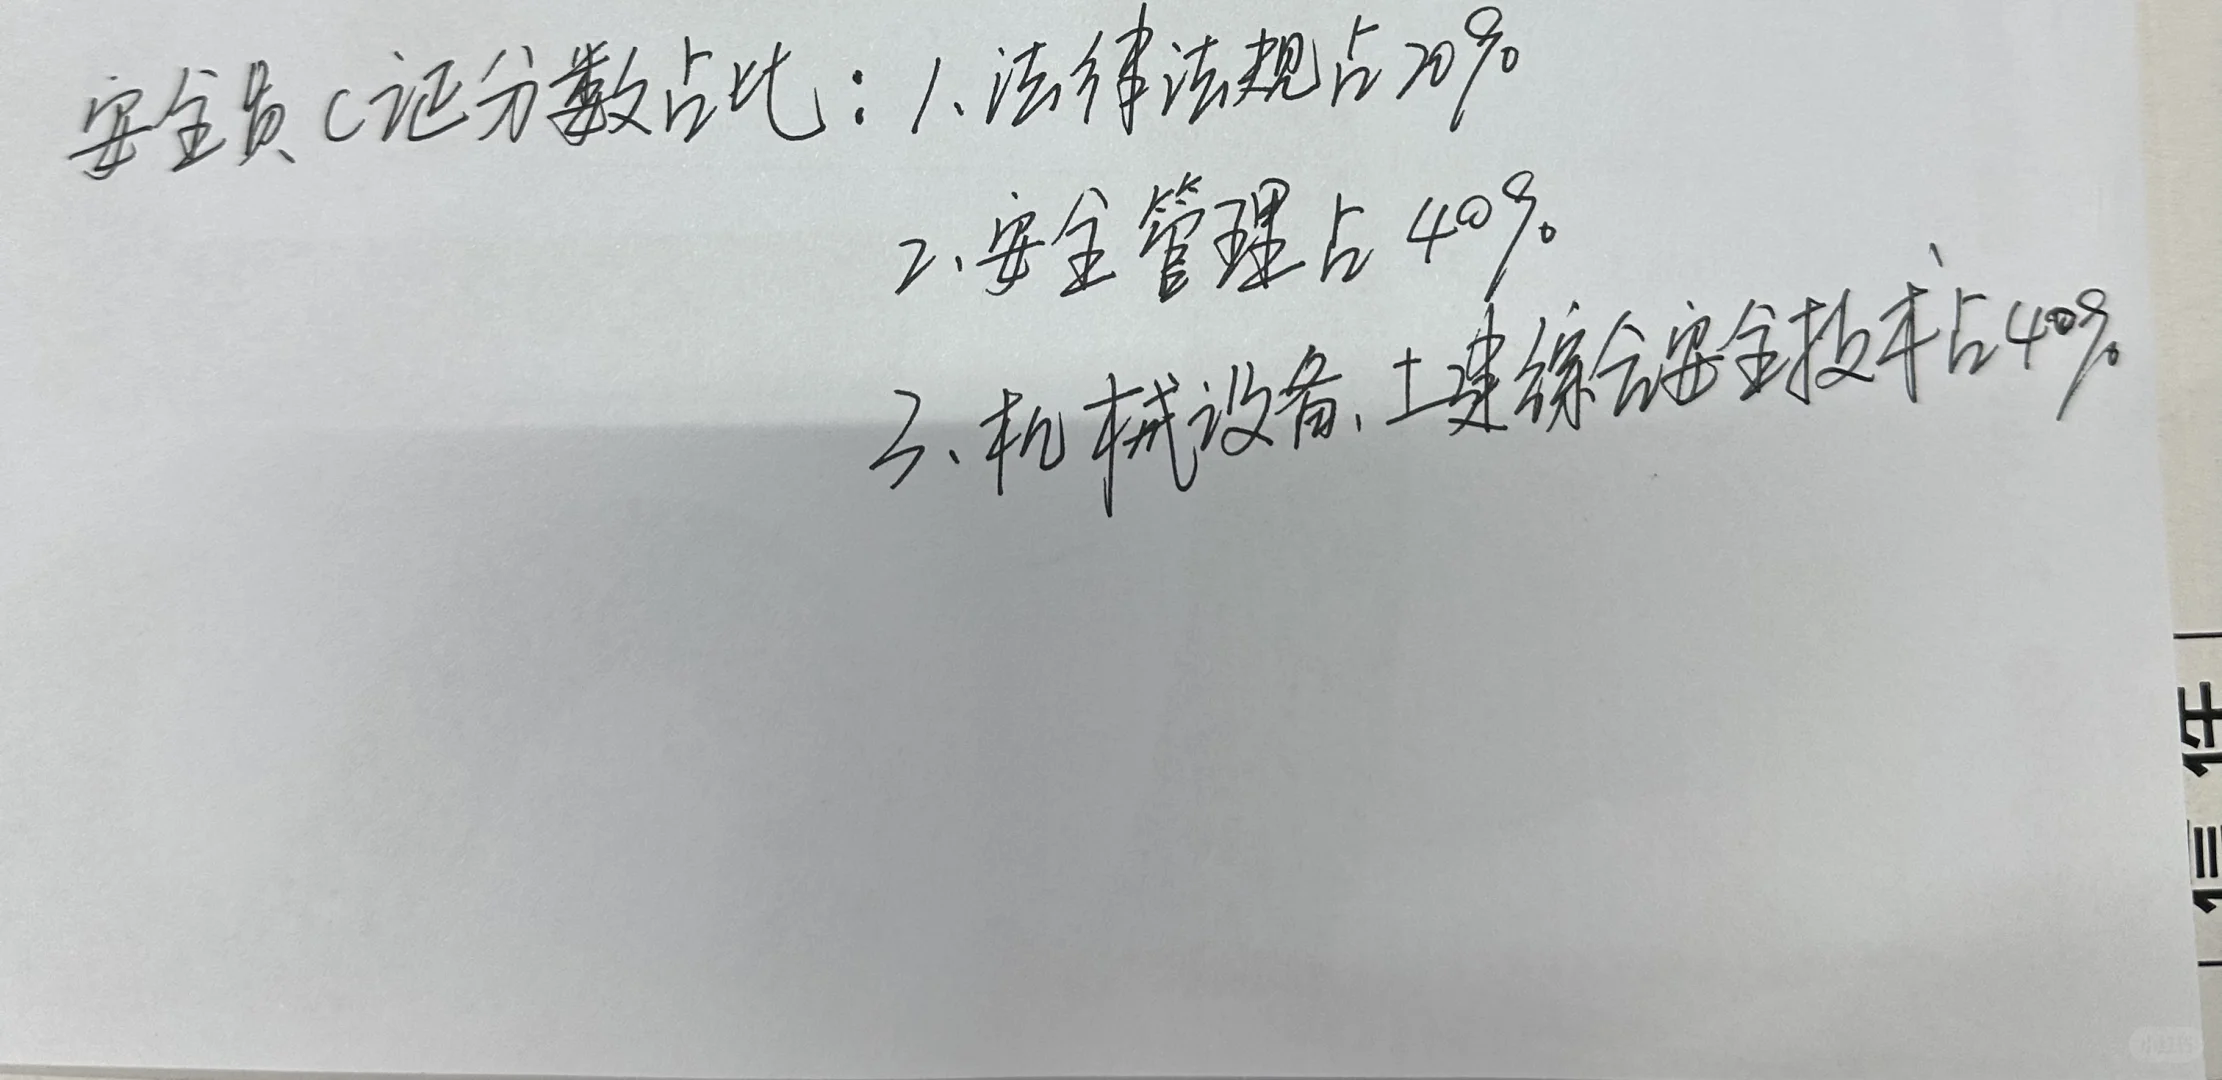 安全员C证分数占比：1、法律法规占20%
2、安全管理占40%
3、机械设备、土建综合安全技术占40%